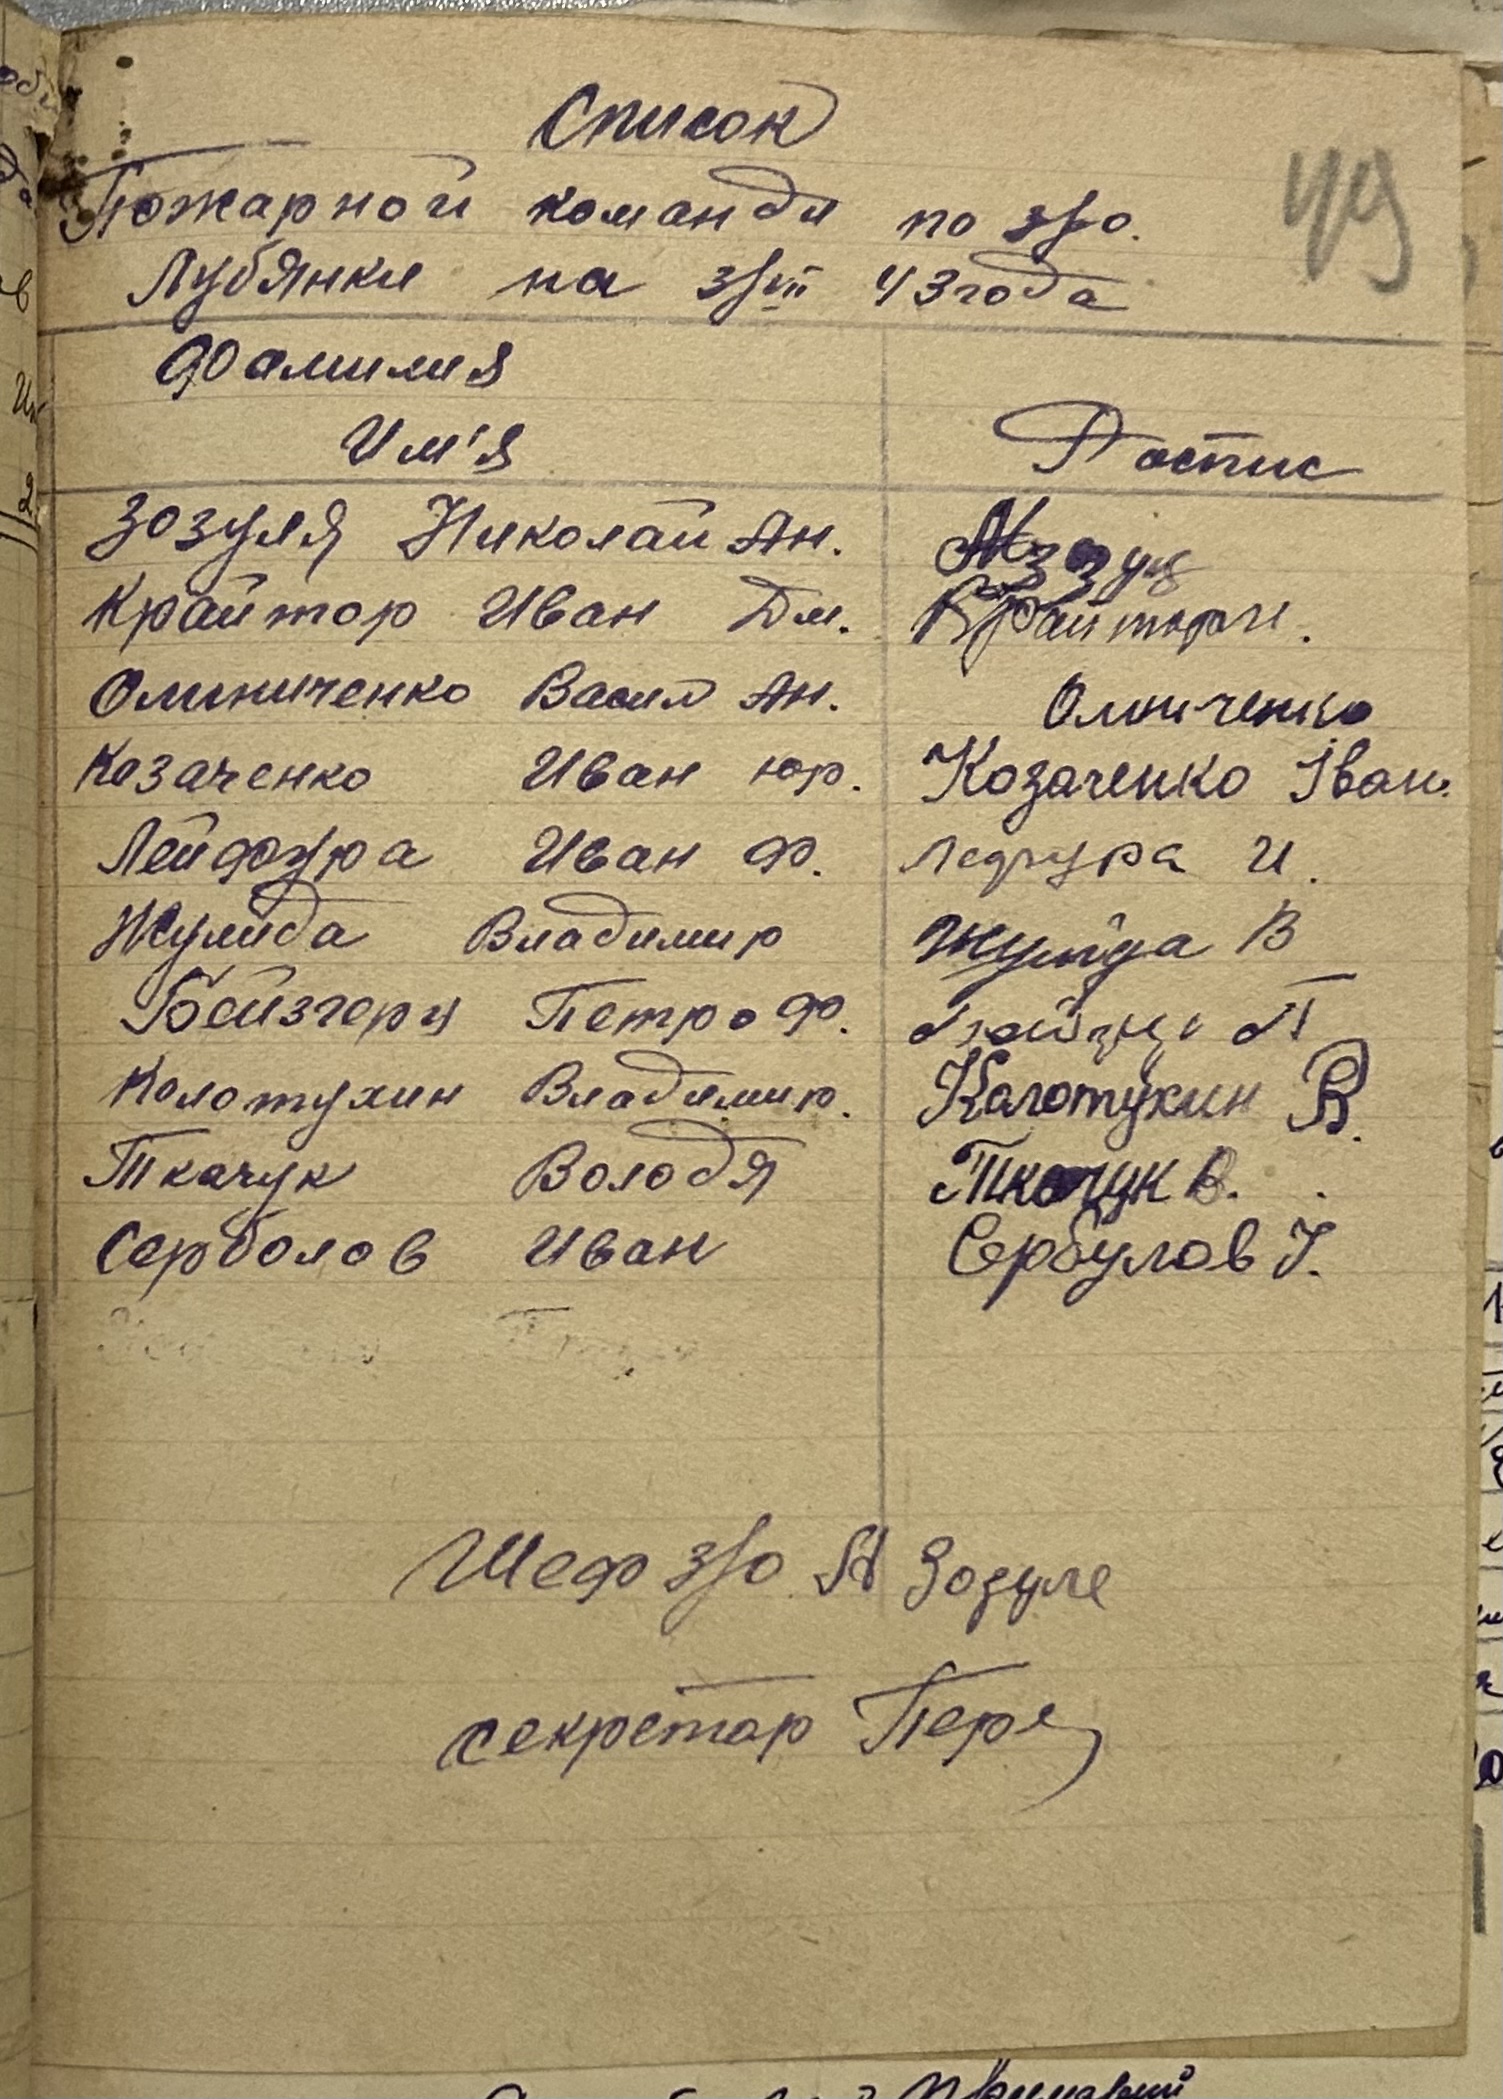 Список
49
Пожарной команди по з/о.
Лубянки на 3/VII 43 года
Фамилия
Им'я
Роспис
Зозуля Николай Ан.
Крайтор Иван Дм. Крайтор И.
Олиниченко Васил Ан. Олниченко
Козаченко Иван Юр. Козаченко Іван.
Лейфура Иван Ф. Лефура И.
Жулида Владимир Жулида В
Бейзгерц Петро Ф. П
Колотухин Владимир. Колотухин В.
Ткачук Володя Ткачук В.
Серболов Иван Сербулов І.
Шеф з/о Зозуле
секретар